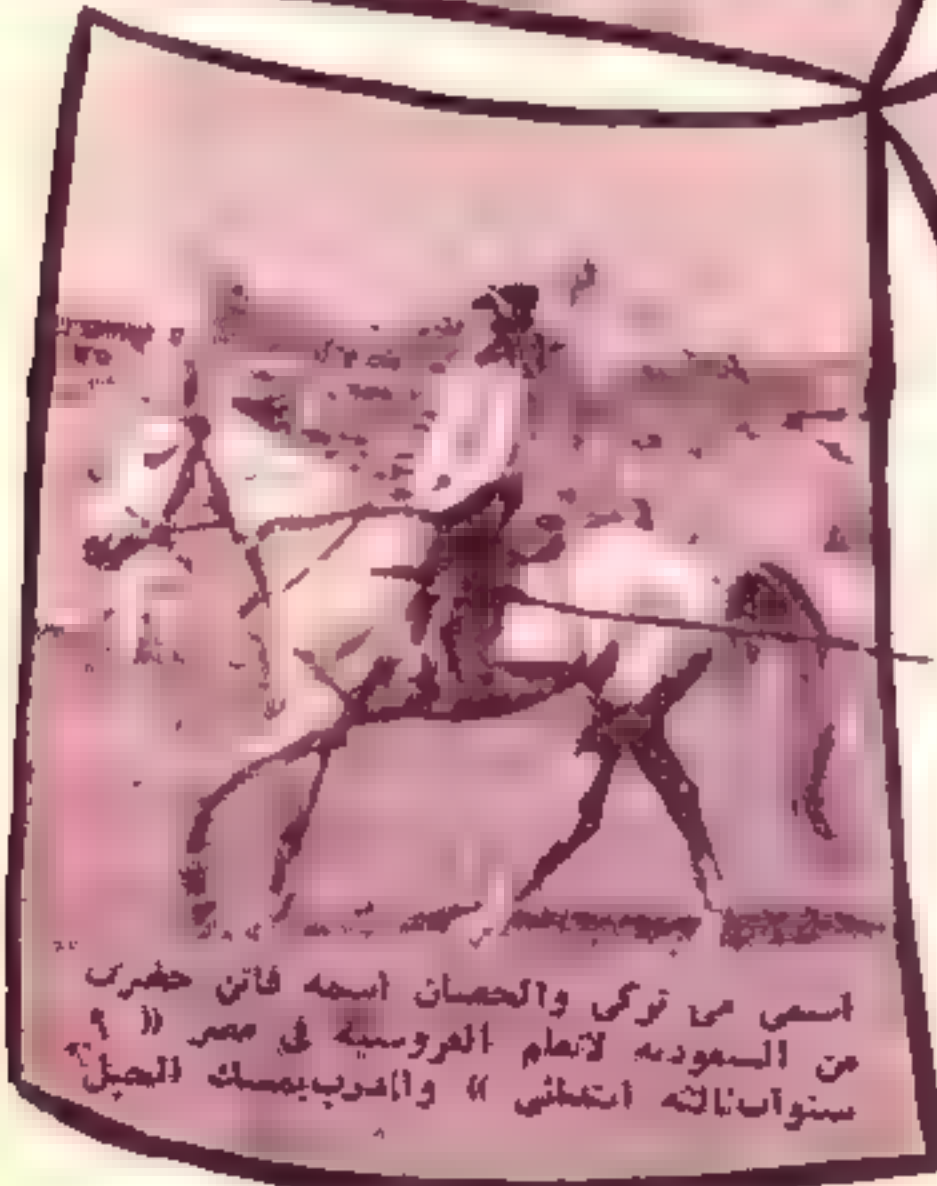 اسمى مى تركى والحصان اسمه فاتن حضرت
من السعوديه لاتعلم الفروسيه فى مصر (( ٩
سنوات ثالثه ابتدائى )) والمدرب يمسك الحبل